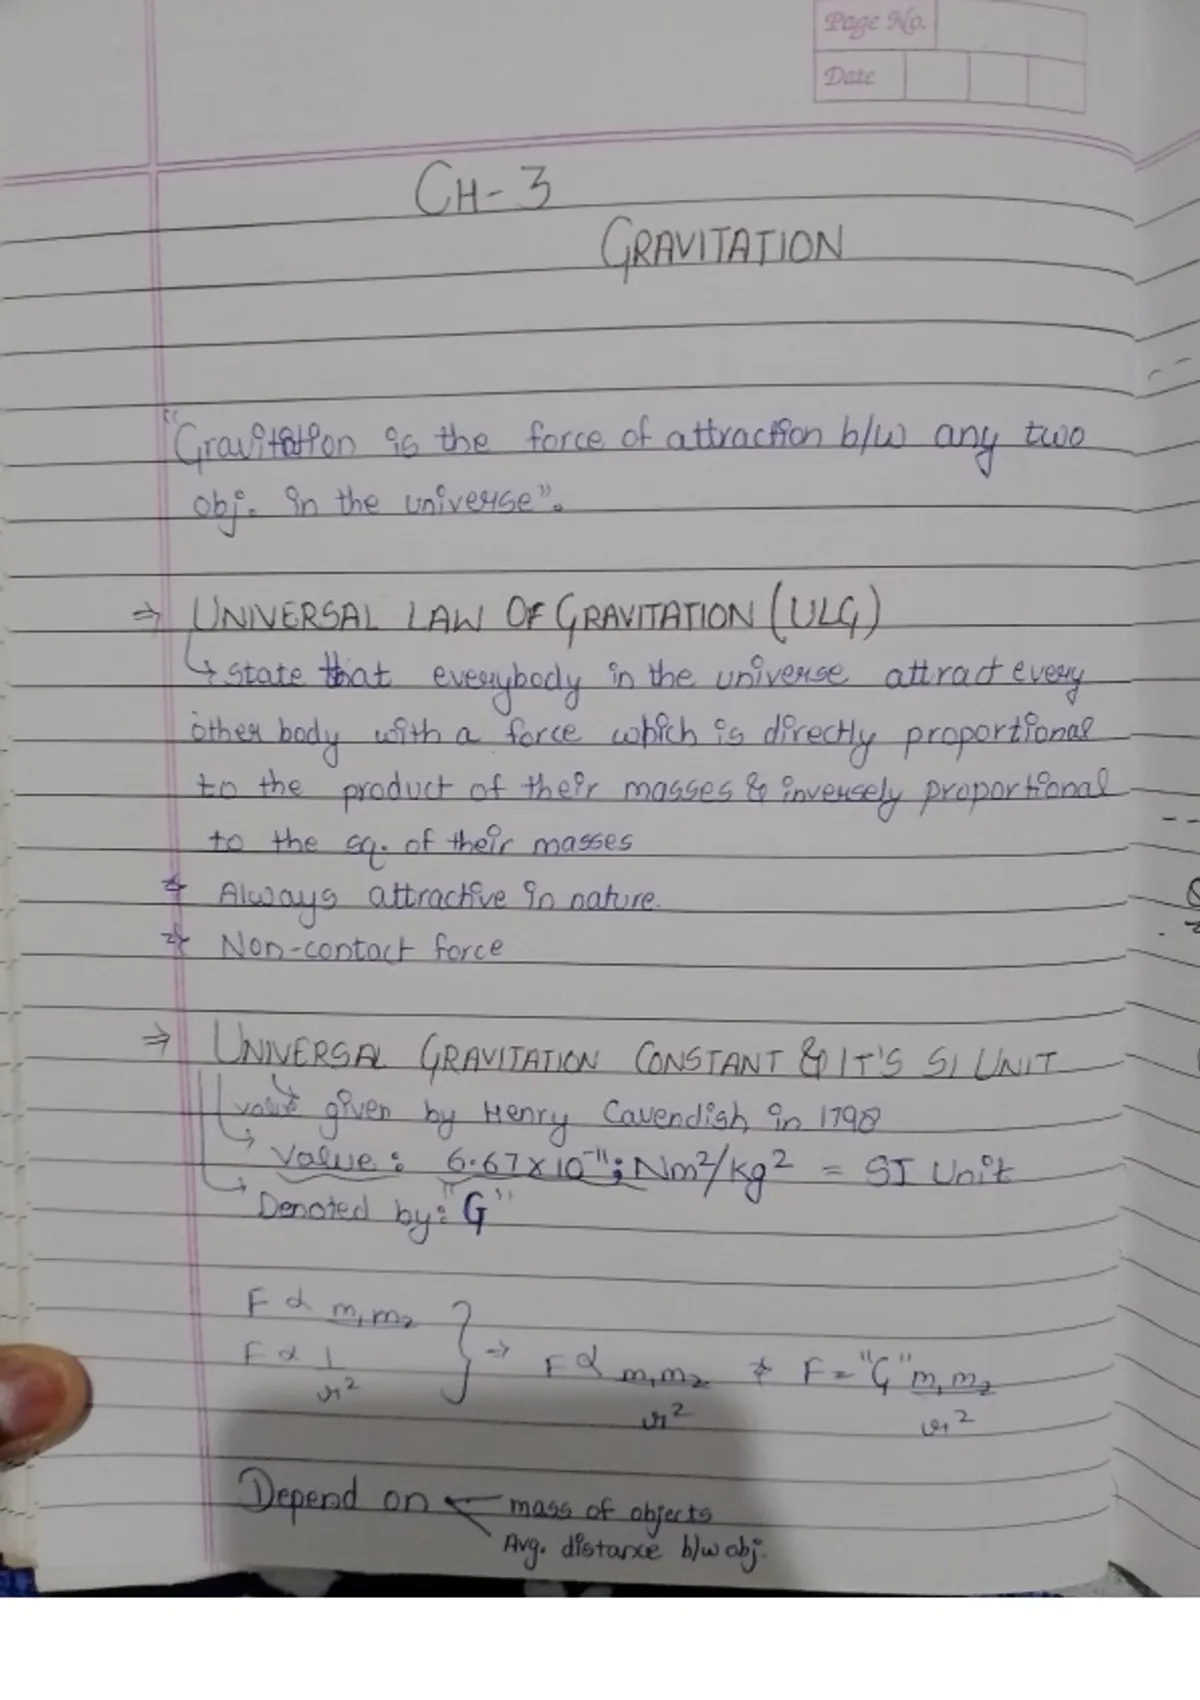 Page No.
Date
CH-3
GRAVITATION
"Gravitation is the force of attraction b/w any two
obj. in the universe".
⇒ UNIVERSAL LAW OF GRAVITATION (ULG)
↳ state that everybody in the universe attract every
other body with a force which is directly proportional
to the product of their masses & inversely proportional
to the sq. of their masses
* Always attractive in nature.
* Non-contact force
⇒ UNIVERSAL GRAVITATION CONSTANT & IT'S SI UNIT
↳ value given by Henry Cavendish in 1798
↳ Value: 6.67×10⁻¹¹; Nm²/kg² = SI Unit
↳ Denoted by: "G"
F ∝ m₁m₂
F ∝ 1/r² } → F ∝ m₁m₂/r² * F = "G" m₁m₂/r²
Depend on ← mass of objects
Avg. distance b/w obj.